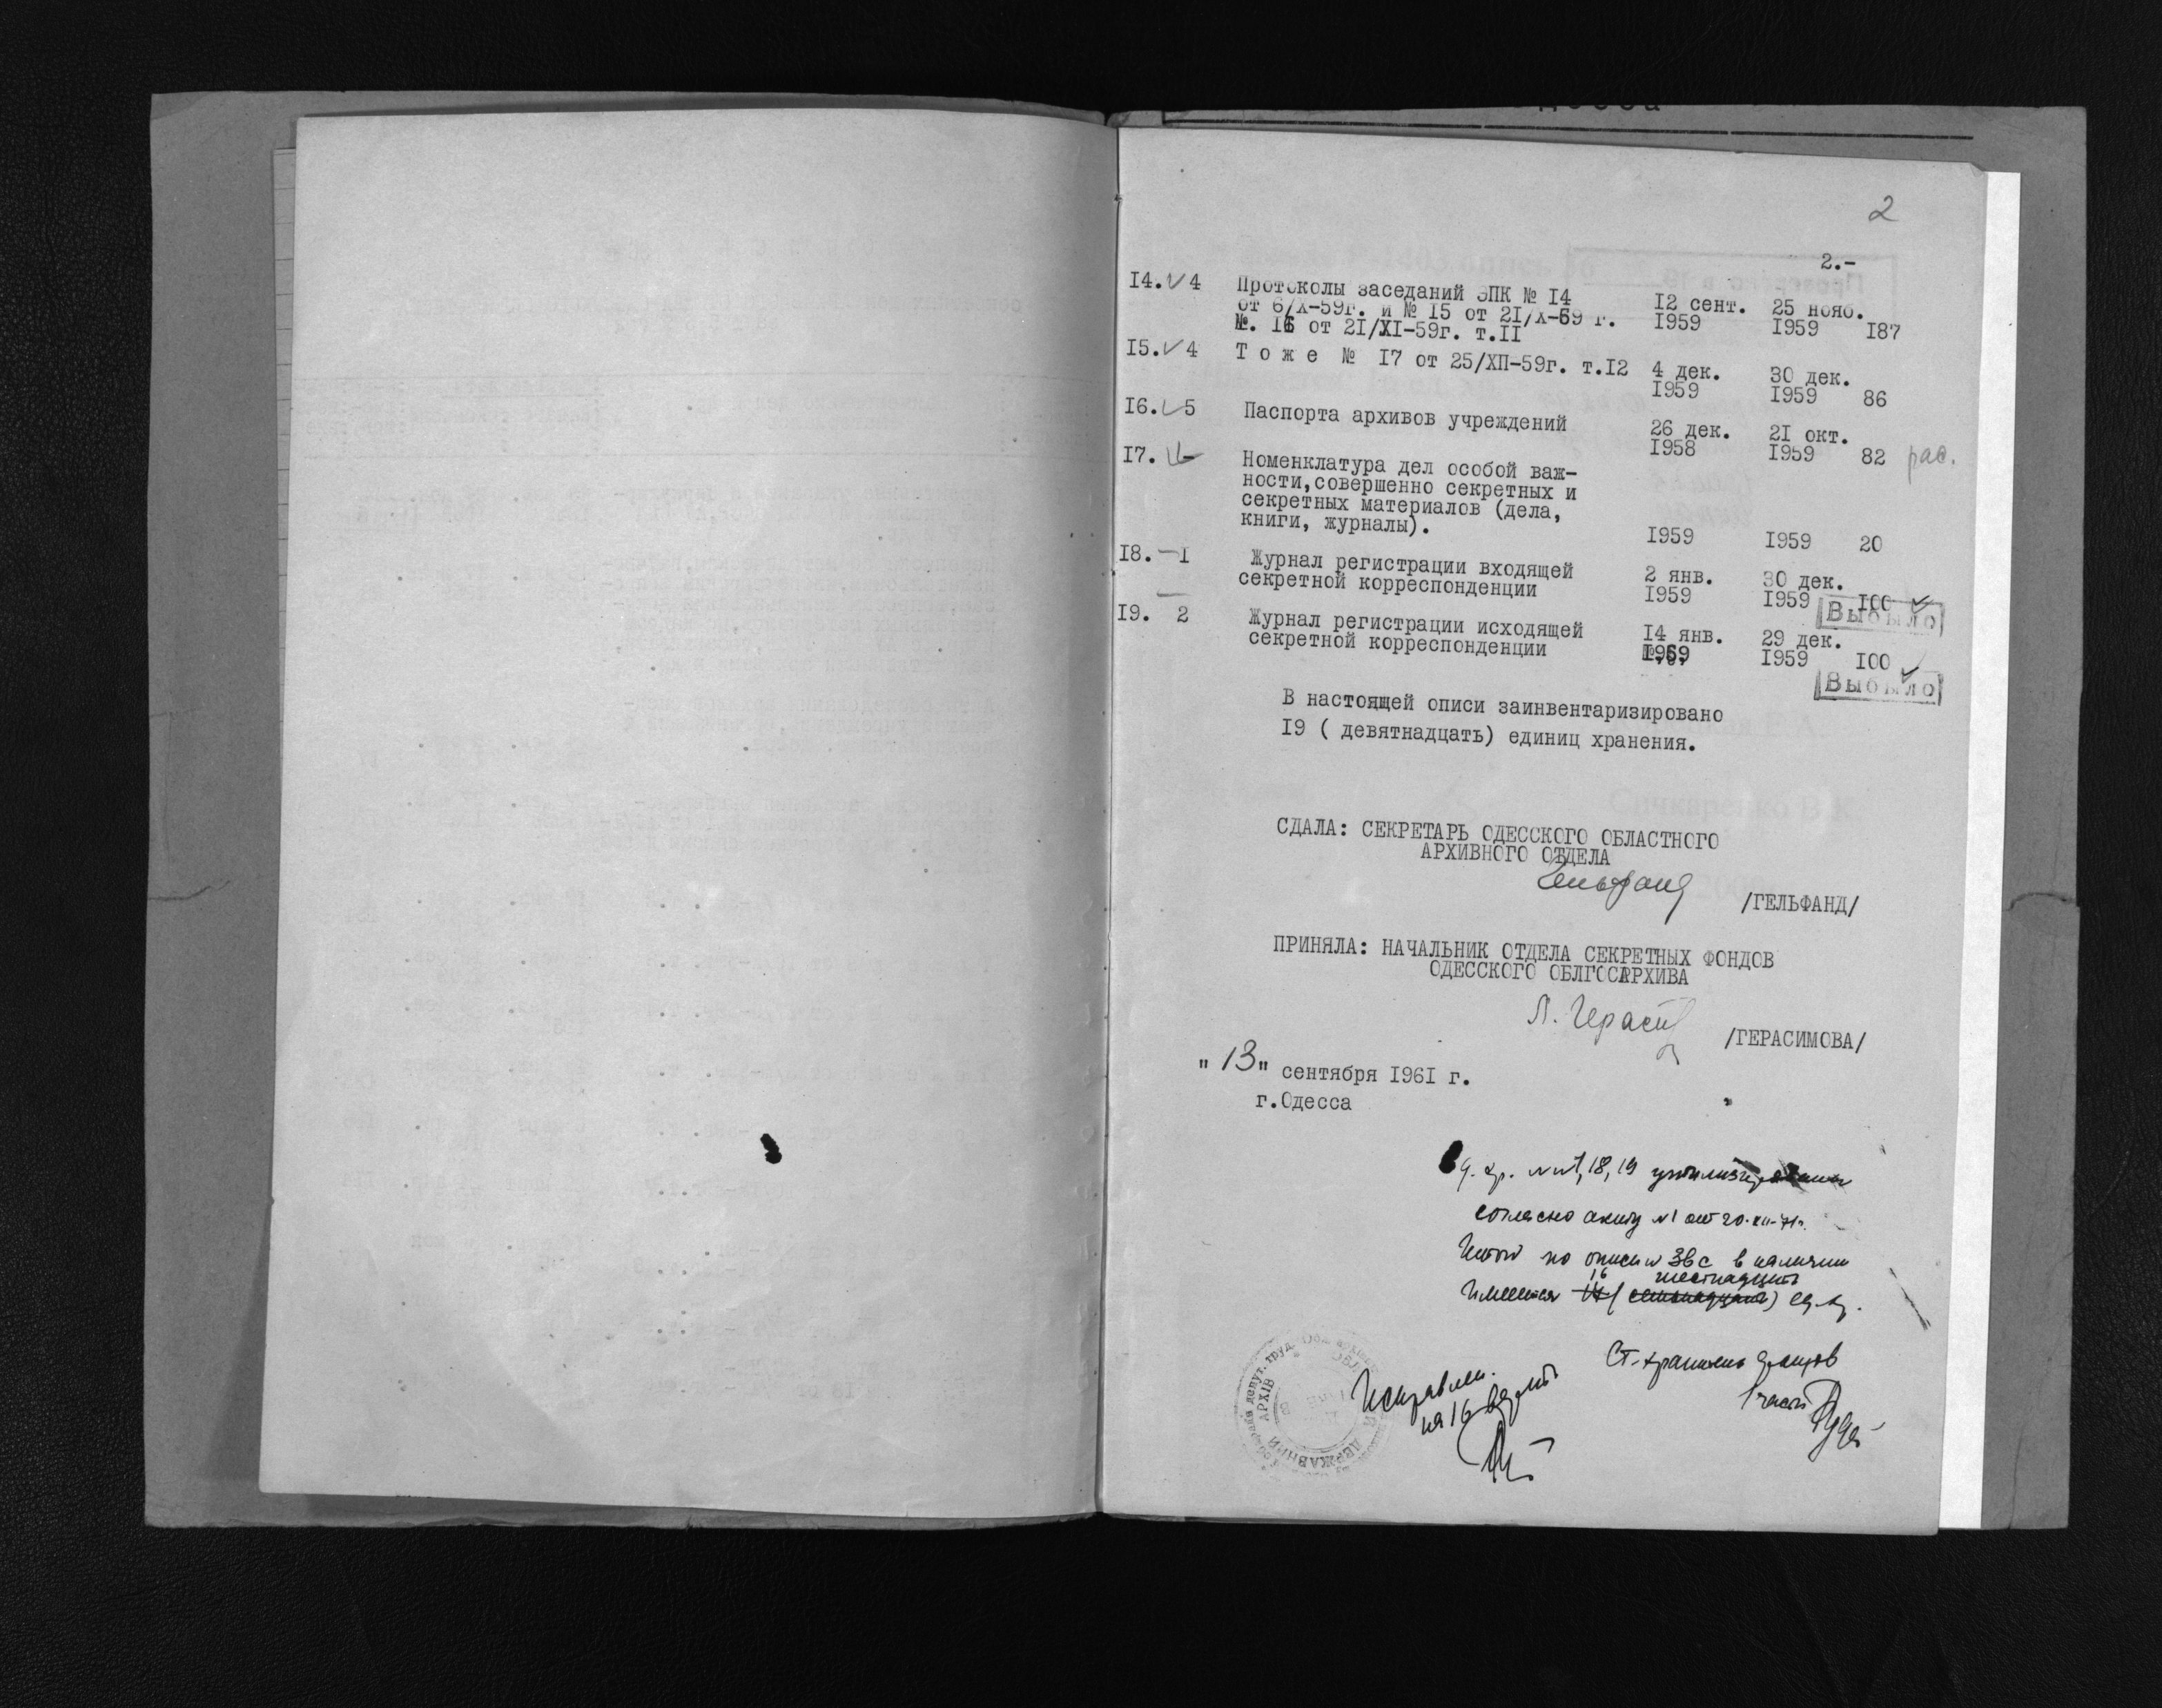 2
2.-
I4. 4 Протоколы заседаний ЭПК № I4 I2 сент. 25 нояб.
от 6/X-59г. и № I5 от 2I/X-59 г. I959 I959 I87
№. I6 от 2I/XI-59г. т.II
I5. 4 Т о ж е № I7 от 25/ХП-59г. т.I2 4 дек. 30 дек.
I959 I959 86
I6. 5 Паспорта архивов учреждений 26 дек. 2I окт.
I958 I959 82 рас.
I7. Номенклатура дел особой важ-
ности,совершенно секретных и
секретных материалов (дела,
книги, журналы). I959 I959 20
I8. I Журнал регистрации входящей 2 янв. 30 дек.
секретной корреспонденции I959 I959 I00
Выбыло
I9. 2 Журнал регистрации исходящей I4 янв. 29 дек.
секретной корреспонденции I959 I959 I00
Выбыло
В настоящей описи заинвентаризировано
I9 ( девятнадцать) единиц хранения.
СДАЛА: СЕКРЕТАРЬ ОДЕССКОГО ОБЛАСТНОГО
АРХИВНОГО ОТДЕЛА
Гельфанд
/ГЕЛЬФАНД/
ПРИНЯЛА: НАЧАЛЬНИК ОТДЕЛА СЕКРЕТНЫХ ФОНДОВ
ОДЕССКОГО ОБЛГОСАРХИВА
Л. Герасим
/ГЕРАСИМОВА/
"13" сентября I96I г.
г.Одесса
хр. 18, 19 утилизированы
согласно акту №1 от 20-XII-71г.
Итого по описи №3вс в наличии
16 шестнадцать
имеется 17 (семнадцать) ед. хр.
Ст. хранитель фондов
Исправлен.
на 16 верить
АРХІВ
ДЕРЖАВНИЙ